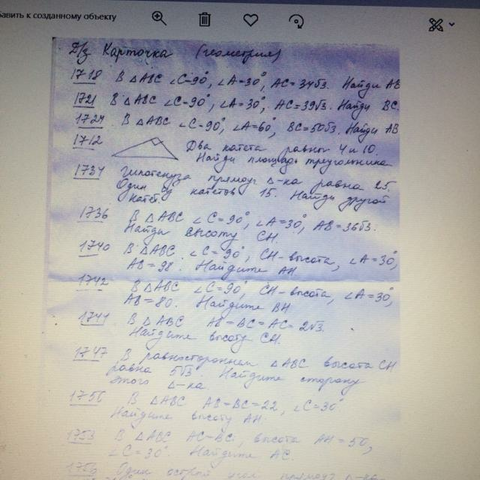 бавить к созданному объекту
Д/з Карточка (геометрия)
1718 В ΔABC ∠C=90°, ∠A=30°, AC=34√3. Найди AB
1721 В ΔABC ∠C=90°, ∠A=30°, AC=39√3. Найди BC
1724 В ΔABC ∠C=90°, ∠A=60°, BC=50√3. Найди AB
1712 Два катета равны 4 и 10.
Найди площадь треугольника
1734 Гипотенуза прямоуг. Δ-ка равна 25
Один из катетов 15. Найди другой
катет
1736 В ΔABC ∠C=90°, ∠A=30°, AB=36√3.
Найди высоту CH.
1740 В ΔABC ∠C=90°, CH-высота, ∠A=30°,
AB=98. Найдите AH
1742 В ΔABC ∠C=90°, CH-высота, ∠A=30°,
AB=80. Найдите BH.
1744 В ΔABC AB=BC=AC=2√3
Найдите высоту CH.
1747 В равностороннем ΔABC высота CH
равна 5√3 Найдите сторону
этого Δ-ка
1750 В ΔABC AB=BC=22, ∠C=30°
Найдите высоту AH.
1753 В ΔABC AC=BC, высота AH=50,
∠C=30°. Найдите AC
Один острый угол